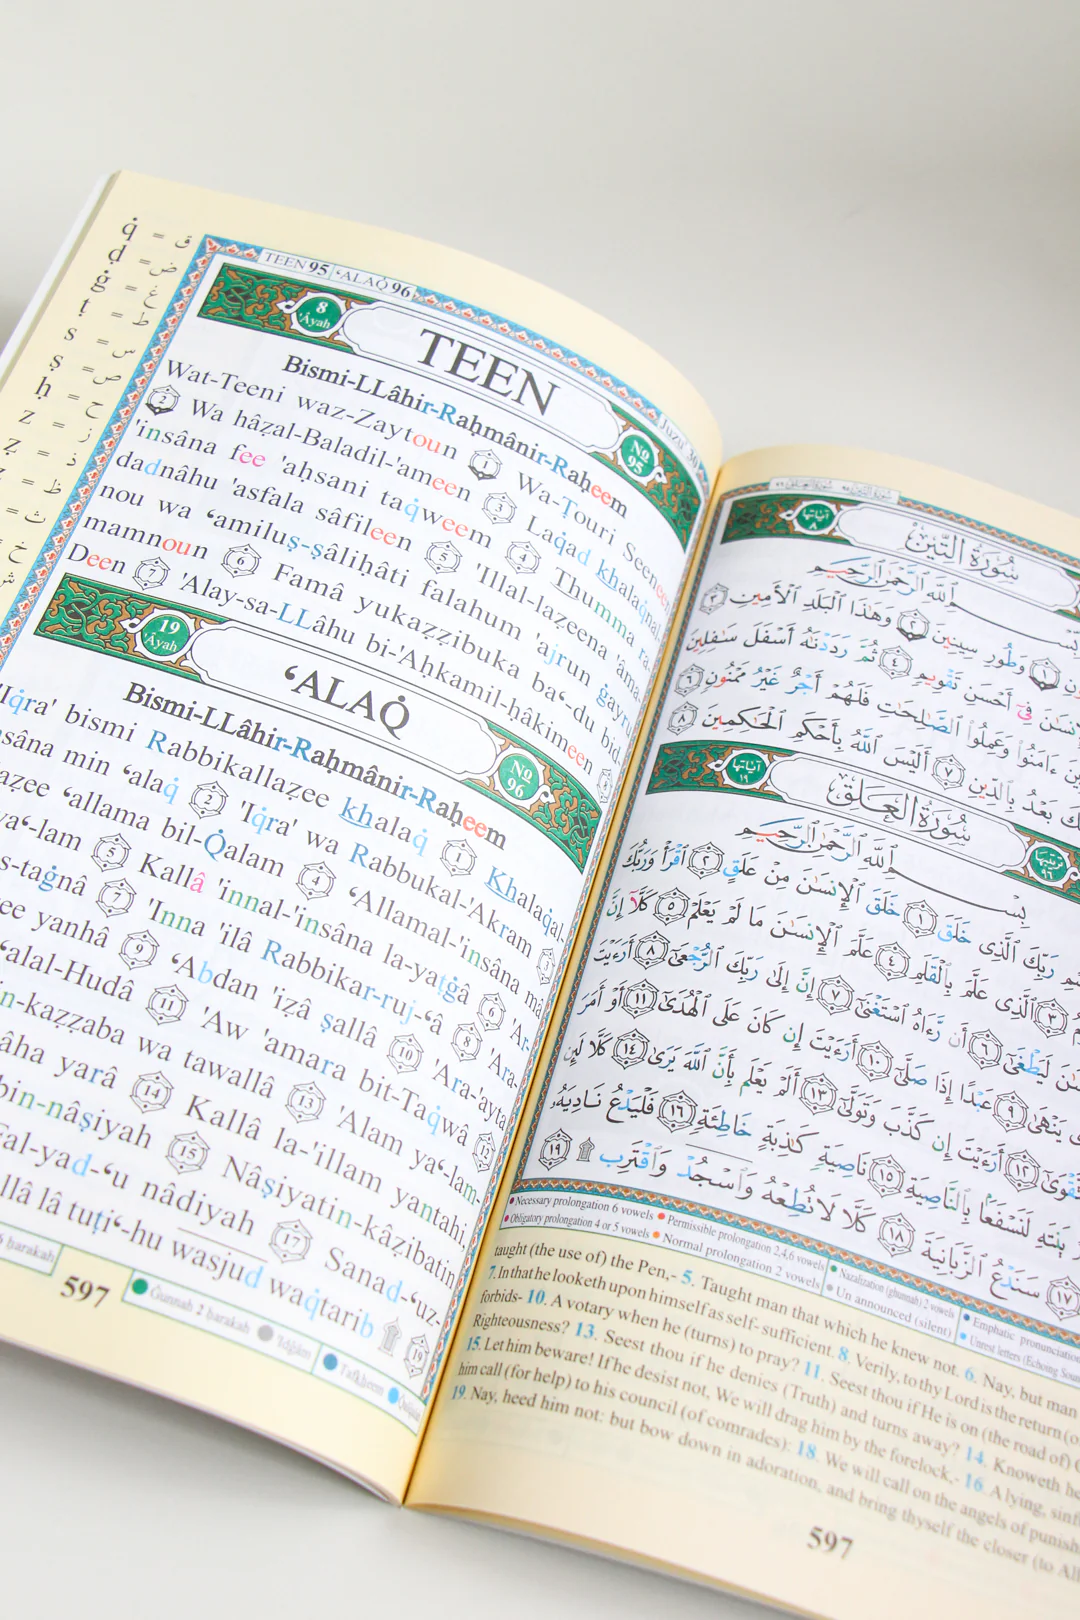 q̇ = ق
ḍ = ض
ġ = غ
ṭ = ط
s = س
ṣ = ص
ḥ = ح
z = ز
ẓ = ذ
= ظ
= ث
= خ
= ش
TEEN 95 ‘ALAQ̇ 96
Juzu' 30
8 'Âyah
TEEN
No 95
Bismi-LLâhir-Raḥmânir-Raḥeem
Wat-Teeni waz-Zaytoun 1 Wa-Ṭouri Seeneen
2 Wa hâẓal-Baladil-'ameen 3 Laq̇ad khalaq̇nal-
'insâna fee 'aḥsani taq̇weem 4 Thumma ra-
dadnâhu 'asfala sâfileen 5 'Illal-lazeena 'âma
nou wa ‘amiluṣ-ṣâlihâti falahum 'ajrun ġayru
mamnoun 6 Famâ yukaẓẓibuka ba‘-du bid-
Deen 7 'Alay-sa-LLâhu bi-'Aḥkamil-ḥâkimeen 8
19 'Âyah
‘ALAQ̇
No 96
Bismi-LLâhir-Raḥmânir-Raḥeem
'Iq̇ra' bismi Rabbikallaẓee khalaq̇ 1 Khalaq̇al-
sâna min ‘alaq̇ 2 'Iq̇ra' wa Rabbukal-'Akram 3
aẓee ‘allama bil-Q̇alam 4 ‘Allamal-'insâna mâ
ya‘-lam 5 Kallâ 'innal-'insâna la-yaṭġâ 6 'Ar-
s-taġnâ 7 'Inna 'ilâ Rabbikar-ruj-‘â 8 'Ara-
ee yanhâ 9 ‘Abdan 'iẓâ ṣallâ 10 'Ara-'ayta
‘alal-Hudâ 11 'Aw 'amara bit-Taq̇wâ 12
n-kaẓẓaba wa tawallâ 13 'Alam ya‘-lam
âha yarâ 14 Kallâ la-'illam yantahi,
bin-nâṣiyah 15 Nâṣiyatin-kâẓibatin
Fal-yad-‘u nâdiyah 17 Sanad-‘uz-
llâ lâ tuṭi‘-hu wasjud waq̇tarib 19
6 ḥarakah
597
Ġunnah 2 ḥarakah 'Idġâm Tafkheem Q̇alq̇alah
آياتها ٨
سُورَةُ التِّينِ
بِسْمِ ٱللَّهِ ٱلرَّحْمَٰنِ ٱلرَّحِيمِ
١ وَطُورِ سِينِينَ ٢ وَهَٰذَا ٱلْبَلَدِ ٱلْأَمِينِ ٣
ٱلْإِنسَٰنَ فِىٓ أَحْسَنِ تَقْوِيمٍ ٤ ثُمَّ رَدَدْنَٰهُ أَسْفَلَ سَٰفِلِينَ
ٱلَّذِينَ ءَامَنُوا۟ وَعَمِلُوا۟ ٱلصَّٰلِحَٰتِ فَلَهُمْ أَجْرٌ غَيْرُ مَمْنُونٍ ٦
يُكَذِّبُكَ بَعْدُ بِٱلدِّينِ ٧ أَلَيْسَ ٱللَّهُ بِأَحْكَمِ ٱلْحَٰكِمِينَ ٨
آياتها ١٩
سُورَةُ العَلَقِ
ترتيبها ٩٦
بِسْمِ ٱللَّهِ ٱلرَّحْمَٰنِ ٱلرَّحِيمِ
رَبِّكَ ٱلَّذِى خَلَقَ ١ خَلَقَ ٱلْإِنسَٰنَ مِنْ عَلَقٍ ٢ ٱقْرَأْ وَرَبُّكَ
٣ ٱلَّذِى عَلَّمَ بِٱلْقَلَمِ ٤ عَلَّمَ ٱلْإِنسَٰنَ مَا لَمْ يَعْلَمْ ٥ كَلَّآ إِنَّ
لَيَطْغَىٰٓ ٦ أَن رَّءَاهُ ٱسْتَغْنَىٰٓ ٧ إِنَّ إِلَىٰ رَبِّكَ ٱلرُّجْعَىٰٓ ٨ أَرَءَيْتَ
يَنْهَىٰ ٩ عَبْدًا إِذَا صَلَّىٰٓ ١٠ أَرَءَيْتَ إِن كَانَ عَلَى ٱلْهُدَىٰٓ ١١ أَوْ أَمَرَ
١٢ أَرَءَيْتَ إِن كَذَّبَ وَتَوَلَّىٰٓ ١٣ أَلَمْ يَعْلَم بِأَنَّ ٱللَّهَ يَرَىٰ ١٤ كَلَّا لَئِن
يَنتَهِ لَنَسْفَعًۢا بِٱلنَّاصِيَةِ ١٥ نَاصِيَةٍ كَٰذِبَةٍ خَاطِئَةٍ ١٦ فَلْيَدْعُ نَادِيَهُۥ
١٧ سَنَدْعُ ٱلزَّبَانِيَةَ ١٨ كَلَّا لَا تُطِعْهُ وَٱسْجُدْ وَٱقْتَرِب ۩ ١٩
Necessary prolongation 6 vowels Permissible prolongation 2,4,6 vowels Nazalization (ghunnah) 2 vowels Emphatic pronunciation
Obligatory prolongation 4 or 5 vowels Normal prolongation 2 vowels Un announced (silent) Unrest letters (Echoing Sound)
taught (the use of) the Pen,- 5. Taught man that which he knew not. 6. Nay, but man
7. In that he looketh upon himself as self-sufficient. 8. Verily, to thy Lord is the return (o
forbids- 10. A votary when he (turns) to pray? 11. Seest thou if He is on (the road of)
Righteousness? 13. Seest thou if he denies (Truth) and turns away? 14. Knoweth he
15. Let him beware! If he desist not, We will drag him by the forelock,- 16. A lying, sinf
him call (for help) to his council (of comrades): 18. We will call on the angels of punish
19. Nay, heed him not: but bow down in adoration, and bring thyself the closer (to All
597